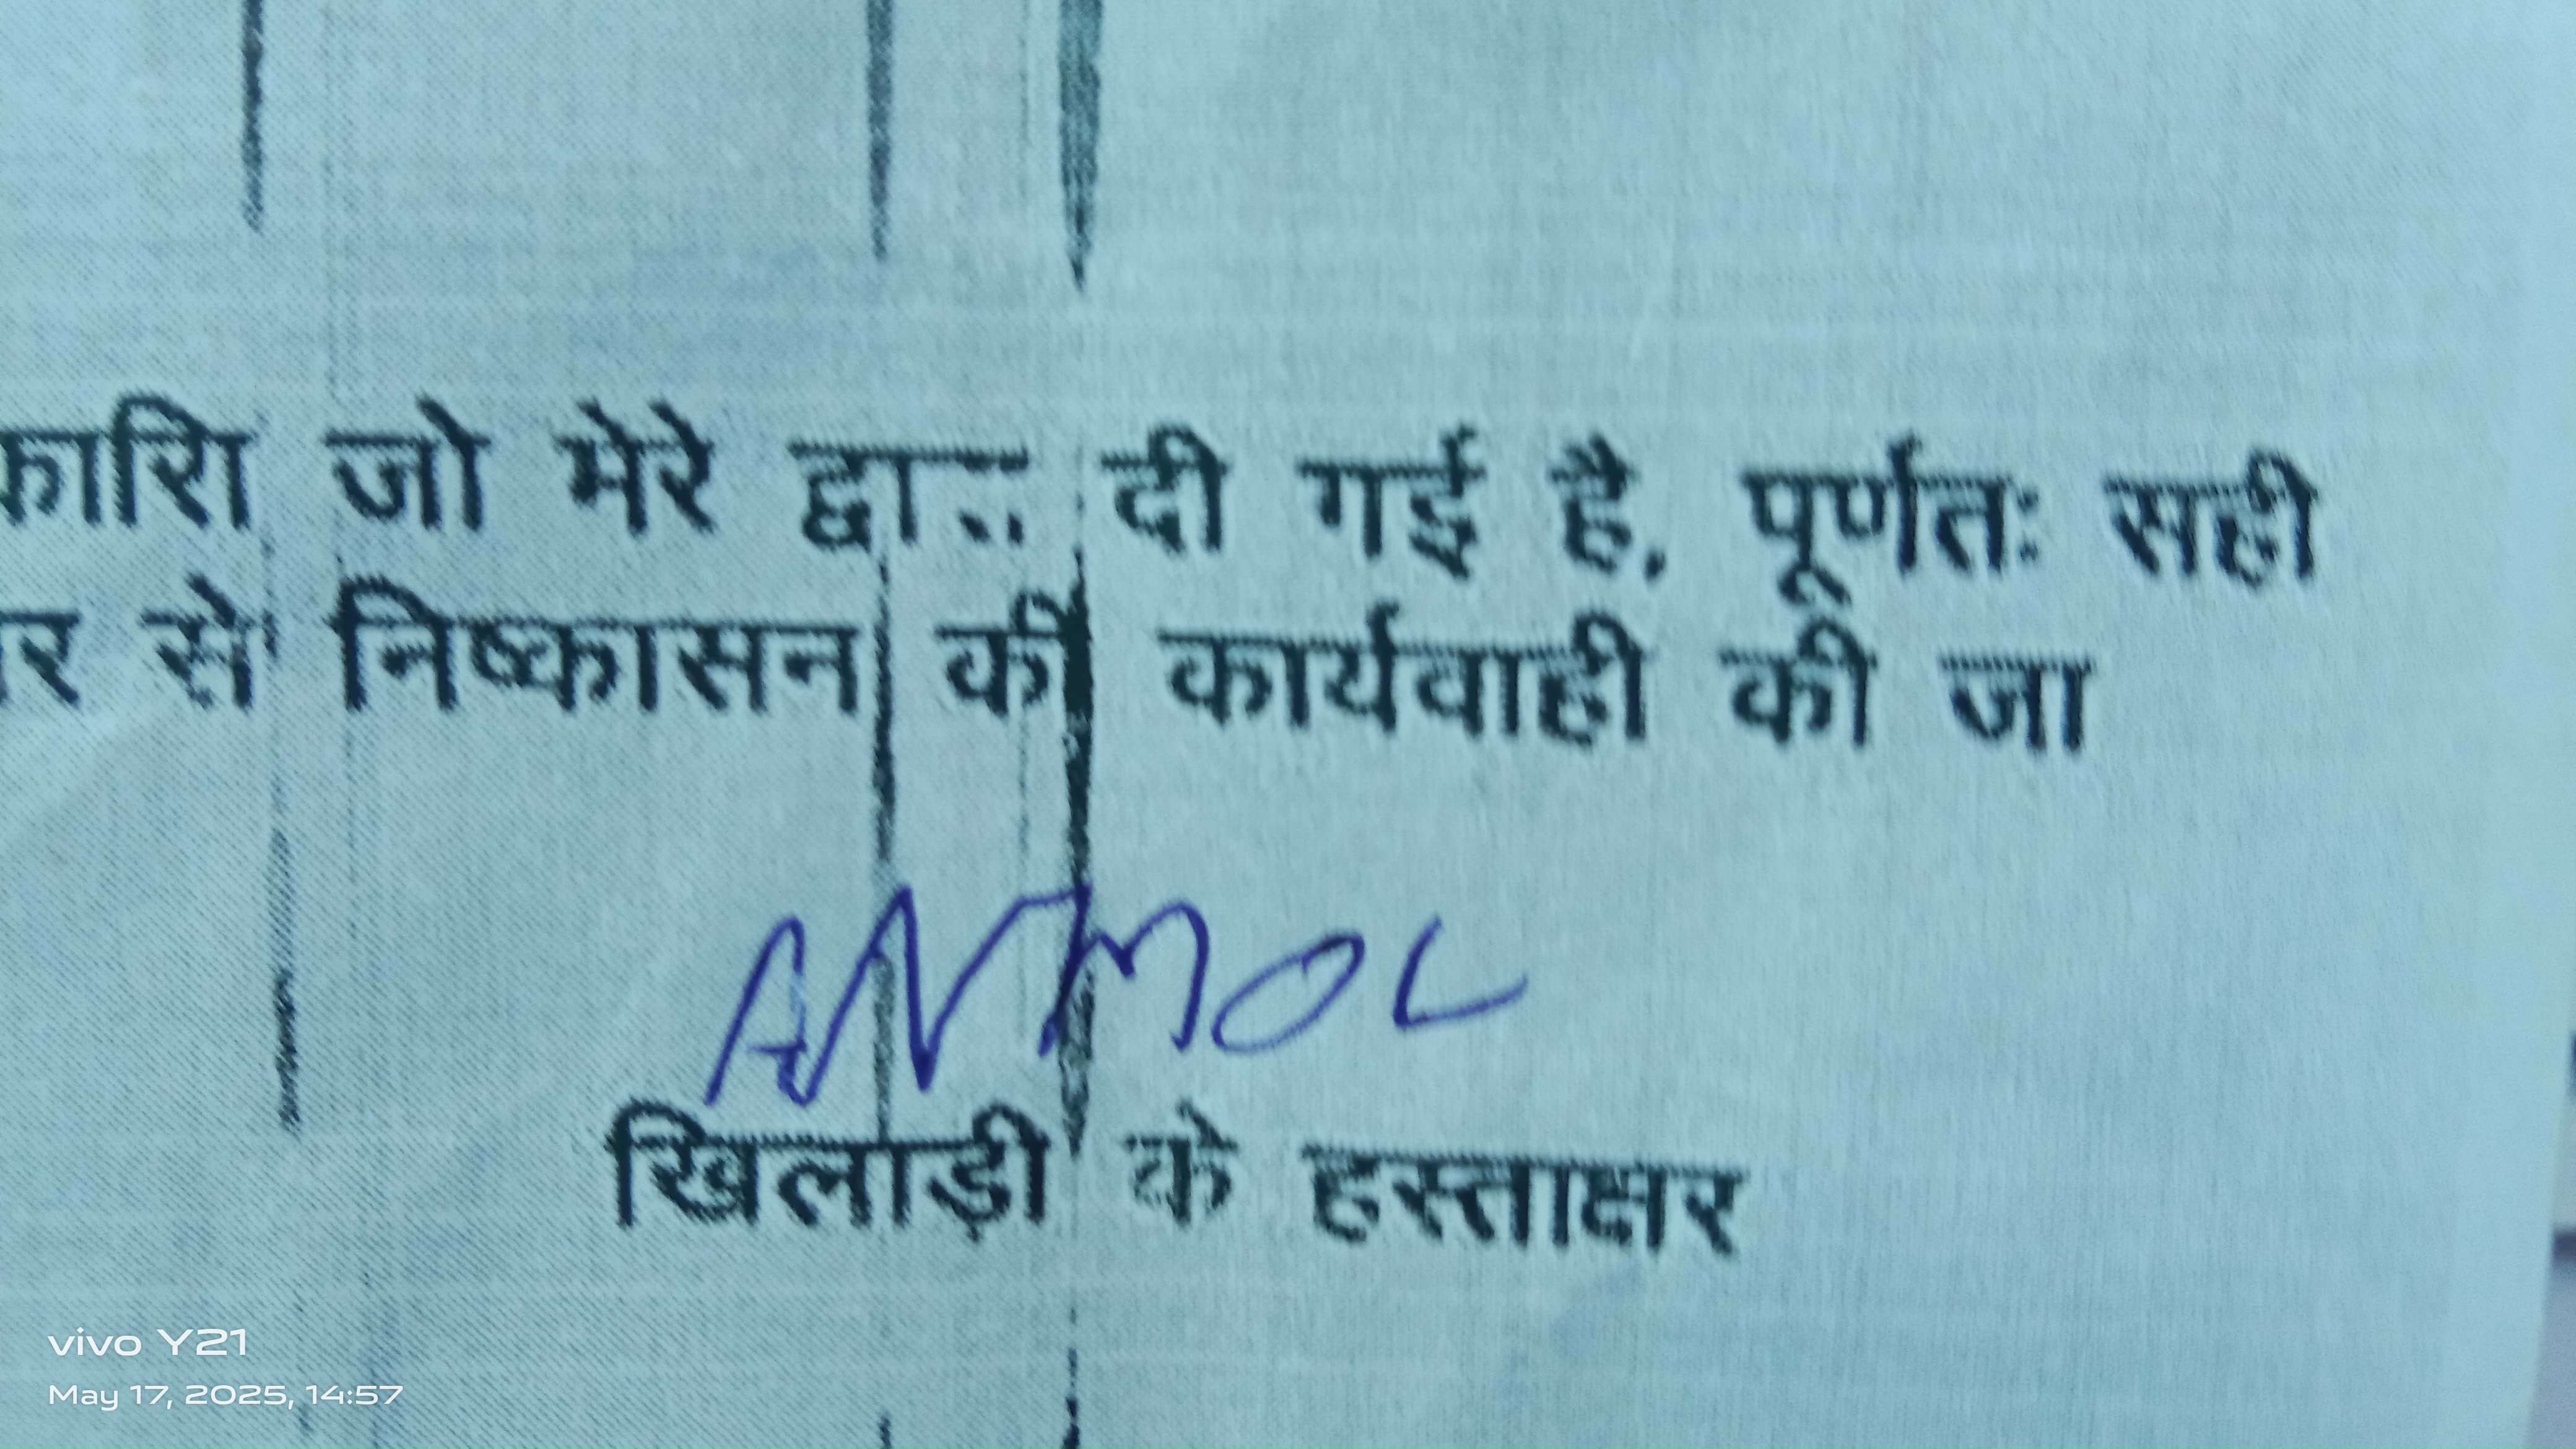 जो मेरे द्वारा दी गई है, पूर्णतः सही
से निष्कासन की कार्यवाही की जा
ANMOL
खिलाड़ी के हस्ताक्षर
vivo Y21
May 17, 2025, 14:57